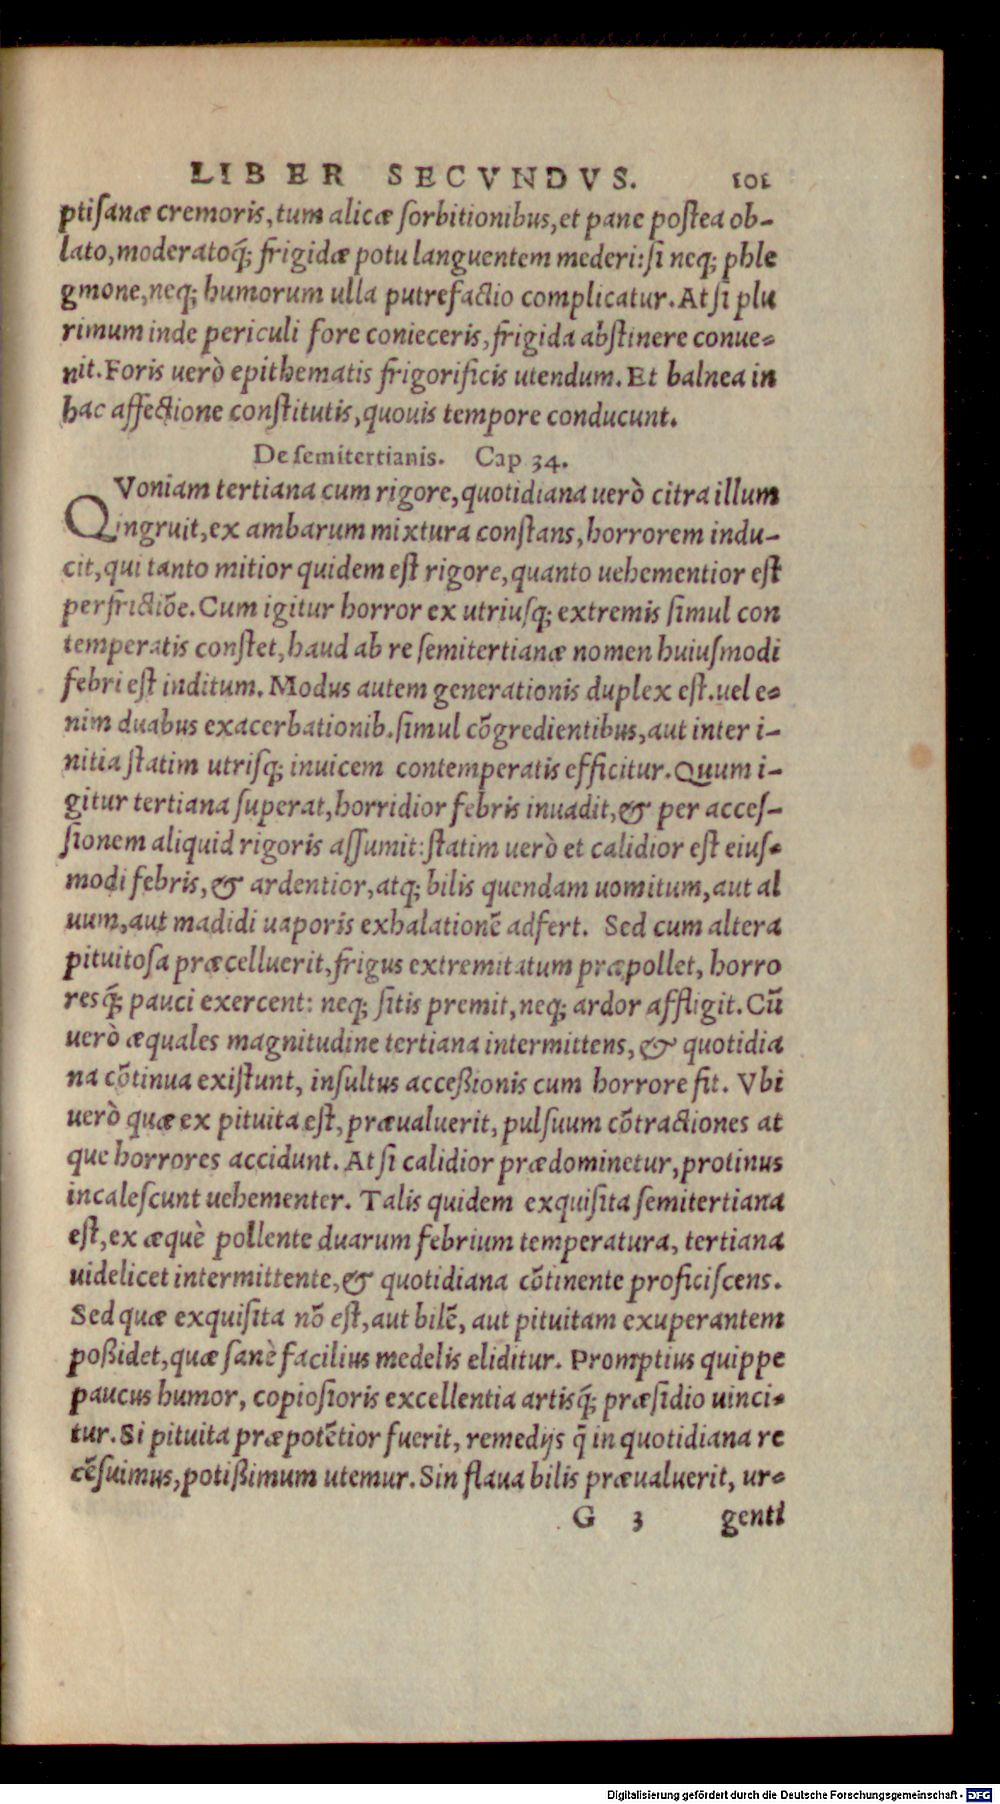 LIBER SECVNDVS. 101
ptisanæ cremoris, tum alicæ sorbitionibus, et pane postea ob-
lato, moderatoq́; frigidæ potu languentem mederi: si neq; phle
gmone, neq; humorum ulla putrefactio complicatur. At si plu
rimum inde periculi fore conieceris, frigida abstinere conue-
nit. Foris uerò epithematis frigorificis utendum. Et balnea in
hac affectione constitutis, quouis tempore conducunt.
De semitertianis. Cap 34.
QVoniam tertiana cum rigore, quotidiana uerò citra illum
ingruit, ex ambarum mixtura constans, horrorem indu-
cit, qui tanto mitior quidem est rigore, quanto uehementior est
perfrictiōe. Cum igitur horror ex utriusq; extremis simul con
temperatis constet, haud ab re semitertianæ nomen huiusmodi
febri est inditum. Modus autem generationis duplex est. uel e-
nim duabus exacerbationib. simul cōgredientibus, aut inter i-
nitia statim utrisq; inuicem contemperatis efficitur. Quum i-
gitur tertiana superat, horridior febris inuadit, & per acces-
sionem aliquid rigoris assumit: statim uerò et calidior est eius-
modi febris, & ardentior, atq; bilis quendam uomitum, aut al
uum, aut madidi uaporis exhalationē adfert. Sed cum altera
pituitosa præcelluerit, frigus extremitatum præpollet, horro
resq́; pauci exercent: neq; sitis premit, neq; ardor affligit. Cū
uerò æquales magnitudine tertiana intermittens, & quotidia
na cōtinua existunt, insultus acceßionis cum horrore fit. Vbi
uerò quæ ex pituita est, præualuerit, pulsuum cōtractiones at
que horrores accidunt. At si calidior prædominetur, protinus
incalescunt uehementer. Talis quidem exquisita semitertiana
est, ex æquè pollente duarum febrium temperatura, tertiana
uidelicet intermittente, & quotidiana cōtinente proficiscens.
Sed quæ exquisita nō est, aut bilē, aut pituitam exuperantem
poßidet, quæ sanè facilius medelis eliditur. Promptius quippe
paucus humor, copiosioris excellentia artisq́; præsidio uinci-
tur. Si pituita præpotētior fuerit, remedijs q̄ in quotidiana re
cēsuimus, potißimum utemur. Sin flaua bilis præualuerit, ur-
G 3 genti
Digitalisierung gefördert durch die Deutsche Forschungsgemeinschaft - DFG